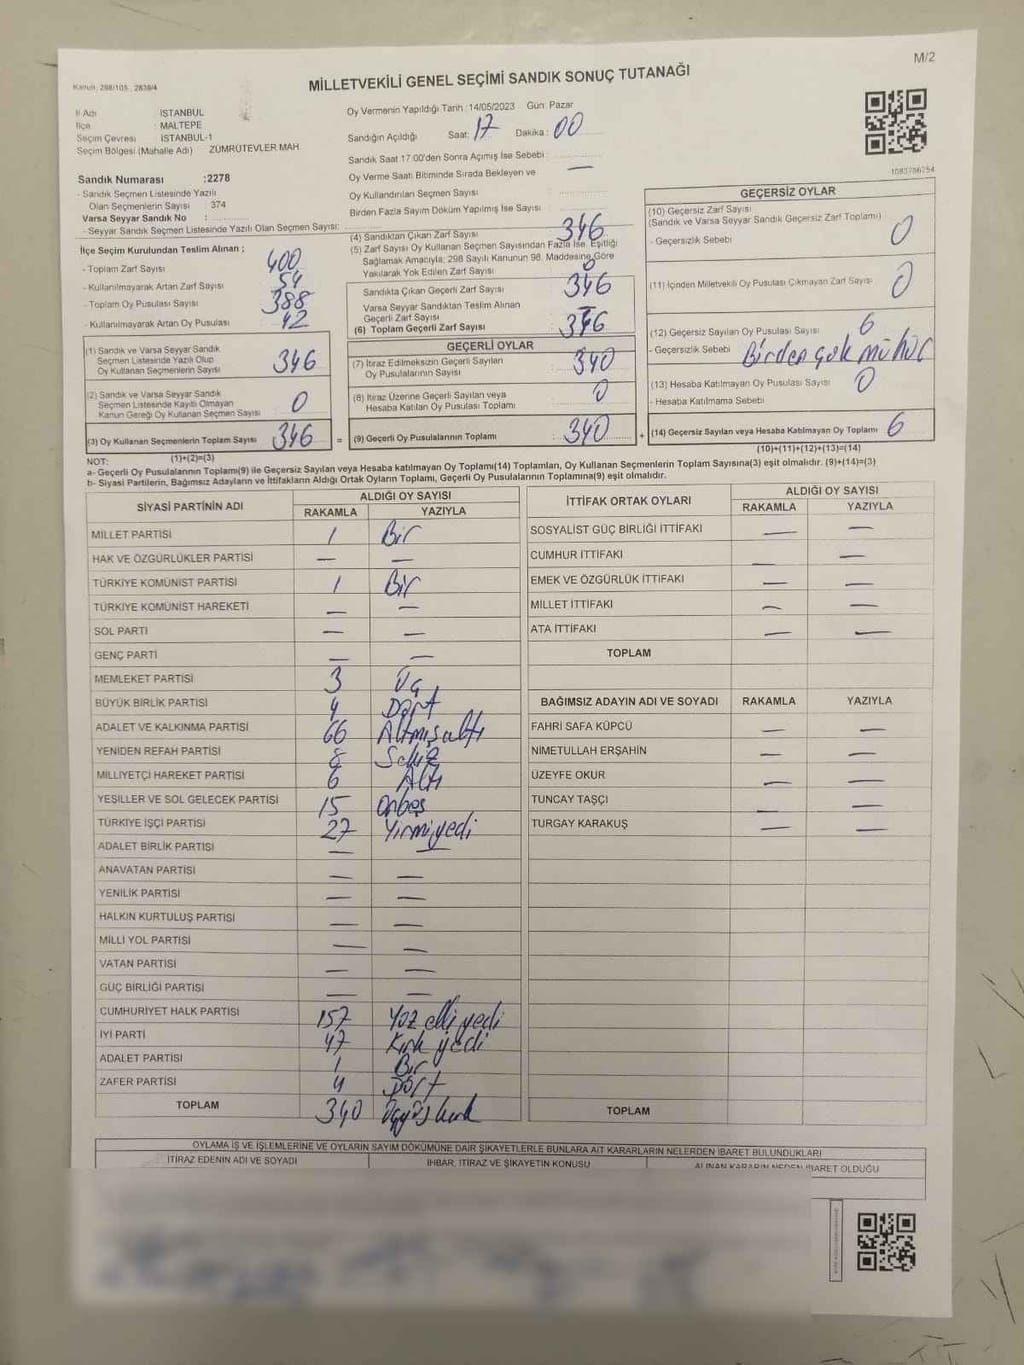 M/2
Kanun: 298/105, 2839/4
MİLLETVEKİLİ GENEL SEÇİMİ SANDIK SONUÇ TUTANAĞI
İl Adı : İSTANBUL
İlçe : MALTEPE
Seçim Çevresi : İSTANBUL-1
Seçim Bölgesi (Mahalle Adı) ZÜMRÜTEVLER MAH
Oy Vermenin Yapıldığı Tarih :14/05/2023 Gün: Pazar
Sandığın Açıldığı Saat: 17 Dakika: 00
Sandık Saat 17.00'den Sonra Açımış İse Sebebi :
Oy Verme Saati Bitiminde Sırada Bekleyen ve
Oy Kullandırılan Seçmen Sayısı : —
Birden Fazla Sayım Döküm Yapılmış İse Sayısı :
1083786754
Sandık Numarası :2278
- Sandık Seçmen Listesinde Yazılı
Olan Seçmenlerin Sayısı : 374
Varsa Seyyar Sandık No :
- Seyyar Sandık Seçmen Listesinde Yazılı Olan Seçmen Sayısı:
İlçe Seçim Kurulundan Teslim Alınan ;
- Toplam Zarf Sayısı 400
- Kullanılmayarak Artan Zarf Sayısı : 54
- Toplam Oy Pusulası Sayısı 388
- Kullanılmayarak Artan Oy Pusulası : 42
(1) Sandık ve Varsa Seyyar Sandık
Seçmen Listesinde Yazılı Olup
Oy Kullanan Seçmenlerin Sayısı 346
(2) Sandık ve Varsa Seyyar Sandık
Seçmen Listesinde Kayıtlı Olmayan
Kanun Gereği Oy Kullanan Seçmen Sayısı 0
(3) Oy Kullanan Seçmenlerin Toplam Sayısı 346 =
(1)+(2)=(3)
(4) Sandıktan Çıkan Zarf Sayısı 346
(5) Zarf Sayısı Oy Kullanan Seçmen Sayısından Fazla İse, Eşitliği
Sağlamak Amacıyla; 298 Sayılı Kanunun 98. Maddesine Göre
Yakılarak Yok Edilen Zarf Sayısı : 0
Sandıkta Çıkan Geçerli Zarf Sayısı 346
Varsa Seyyar Sandıktan Teslim Alınan
Geçerli Zarf Sayısı —
(6) Toplam Geçerli Zarf Sayısı 346
GEÇERLİ OYLAR
(7) İtiraz Edilmeksizin Geçerli Sayılan
Oy Pusulalarının Sayısı 340
(8) İtiraz Üzerine Geçerli Sayılan veya
Hesaba Katılan Oy Pusulası Toplamı 0
(9) Geçerli Oy Pusulalarının Toplamı 340 +
GEÇERSİZ OYLAR
(10) Geçersiz Zarf Sayısı
(Sandık ve Varsa Seyyar Sandık Geçersiz Zarf Toplamı)
- Geçersizlik Sebebi 0
(11) İçinden Milletvekili Oy Pusulası Çıkmayan Zarf Sayısı 0
(12) Geçersiz Sayılan Oy Pusulası Sayısı 6
- Geçersizlik Sebebi Birden çok mühür
(13) Hesaba Katılmayan Oy Pusulası Sayısı 0
- Hesaba Katılmama Sebebi
(14) Geçersiz Sayılan veya Hesaba Katılmayan Oy Toplamı 6
(10)+(11)+(12)+(13)=(14)
NOT:
a- Geçerli Oy Pusulalarının Toplamı(9) ile Geçersiz Sayılan veya Hesaba katılmayan Oy Toplamı(14) Toplamları, Oy Kullanan Seçmenlerin Toplam Sayısına(3) eşit olmalıdır. (9)+(14)=(3)
b- Siyasi Partilerin, Bağımsız Adayların ve İttifakların Aldığı Ortak Oyların Toplamı, Geçerli Oy Pusulalarının Toplamına(9) eşit olmalıdır.
SİYASİ PARTİNİN ADI ALDIĞI OY SAYISI
RAKAMLA YAZIYLA
MİLLET PARTİSİ 1 Bir
HAK VE ÖZGÜRLÜKLER PARTİSİ — —
TÜRKİYE KOMÜNİST PARTİSİ 1 Bir
TÜRKİYE KOMÜNİST HAREKETİ — —
SOL PARTİ — —
GENÇ PARTİ — —
MEMLEKET PARTİSİ 3 Üç
BÜYÜK BİRLİK PARTİSİ 4 Dört
ADALET VE KALKINMA PARTİSİ 66 Altmışaltı
YENİDEN REFAH PARTİSİ 8 Sekiz
MİLLİYETÇİ HAREKET PARTİSİ 6 Altı
YEŞİLLER VE SOL GELECEK PARTİSİ 15 Onbeş
TÜRKİYE İŞÇİ PARTİSİ 27 Yirmiyedi
ADALET BİRLİK PARTİSİ — —
ANAVATAN PARTİSİ — —
YENİLİK PARTİSİ — —
HALKIN KURTULUŞ PARTİSİ — —
MİLLİ YOL PARTİSİ — —
VATAN PARTİSİ — —
GÜÇ BİRLİĞİ PARTİSİ — —
CUMHURİYET HALK PARTİSİ 157 Yüz elli yedi
İYİ PARTİ 47 Kırk yedi
ADALET PARTİSİ 1 Bir
ZAFER PARTİSİ 4 Dört
TOPLAM 340 Üçyüz kırk
İTTİFAK ORTAK OYLARI ALDIĞI OY SAYISI
RAKAMLA YAZIYLA
SOSYALİST GÜÇ BİRLİĞİ İTTİFAKI — —
CUMHUR İTTİFAKI — —
EMEK VE ÖZGÜRLÜK İTTİFAKI — —
MİLLET İTTİFAKI — —
ATA İTTİFAKI — —
TOPLAM
BAĞIMSIZ ADAYIN ADI VE SOYADI RAKAMLA YAZIYLA
FAHRİ SAFA KÜPCÜ — —
NİMETULLAH ERŞAHİN — —
ÜZEYFE OKUR — —
TUNCAY TAŞÇI — —
TURGAY KARAKUŞ — —
TOPLAM
OYLAMA İŞ VE İŞLEMLERİNE VE OYLARIN SAYIM DÖKÜMÜNE DAİR ŞİKAYETLERLE BUNLARA AİT KARARLARIN NELERDEN İBARET BULUNDUKLARI
İTİRAZ EDENİN ADI VE SOYADI İHBAR, İTİRAZ VE ŞİKAYETİN KONUSU ALINAN KARARIN NEDEN İBARET OLDUĞU